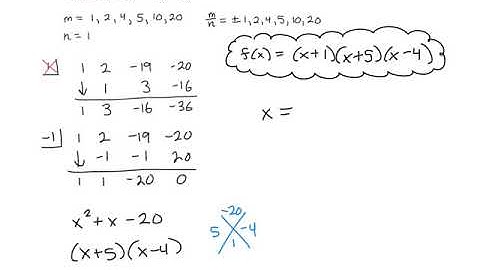 m = 1, 2, 4, 5, 10, 20   m/n = ± 1, 2, 4, 5, 10, 20
n = 1
f(x) = (x+1)(x+5)(x-4)
1 2 -19 -20
↓ 1 3 -16
1 3 -16 -36
x =
-1 1 2 -19 -20
↓ -1 -1 20
1 1 -20 0
x² + x - 20
(x+5)(x-4)
-20
5 -4
1